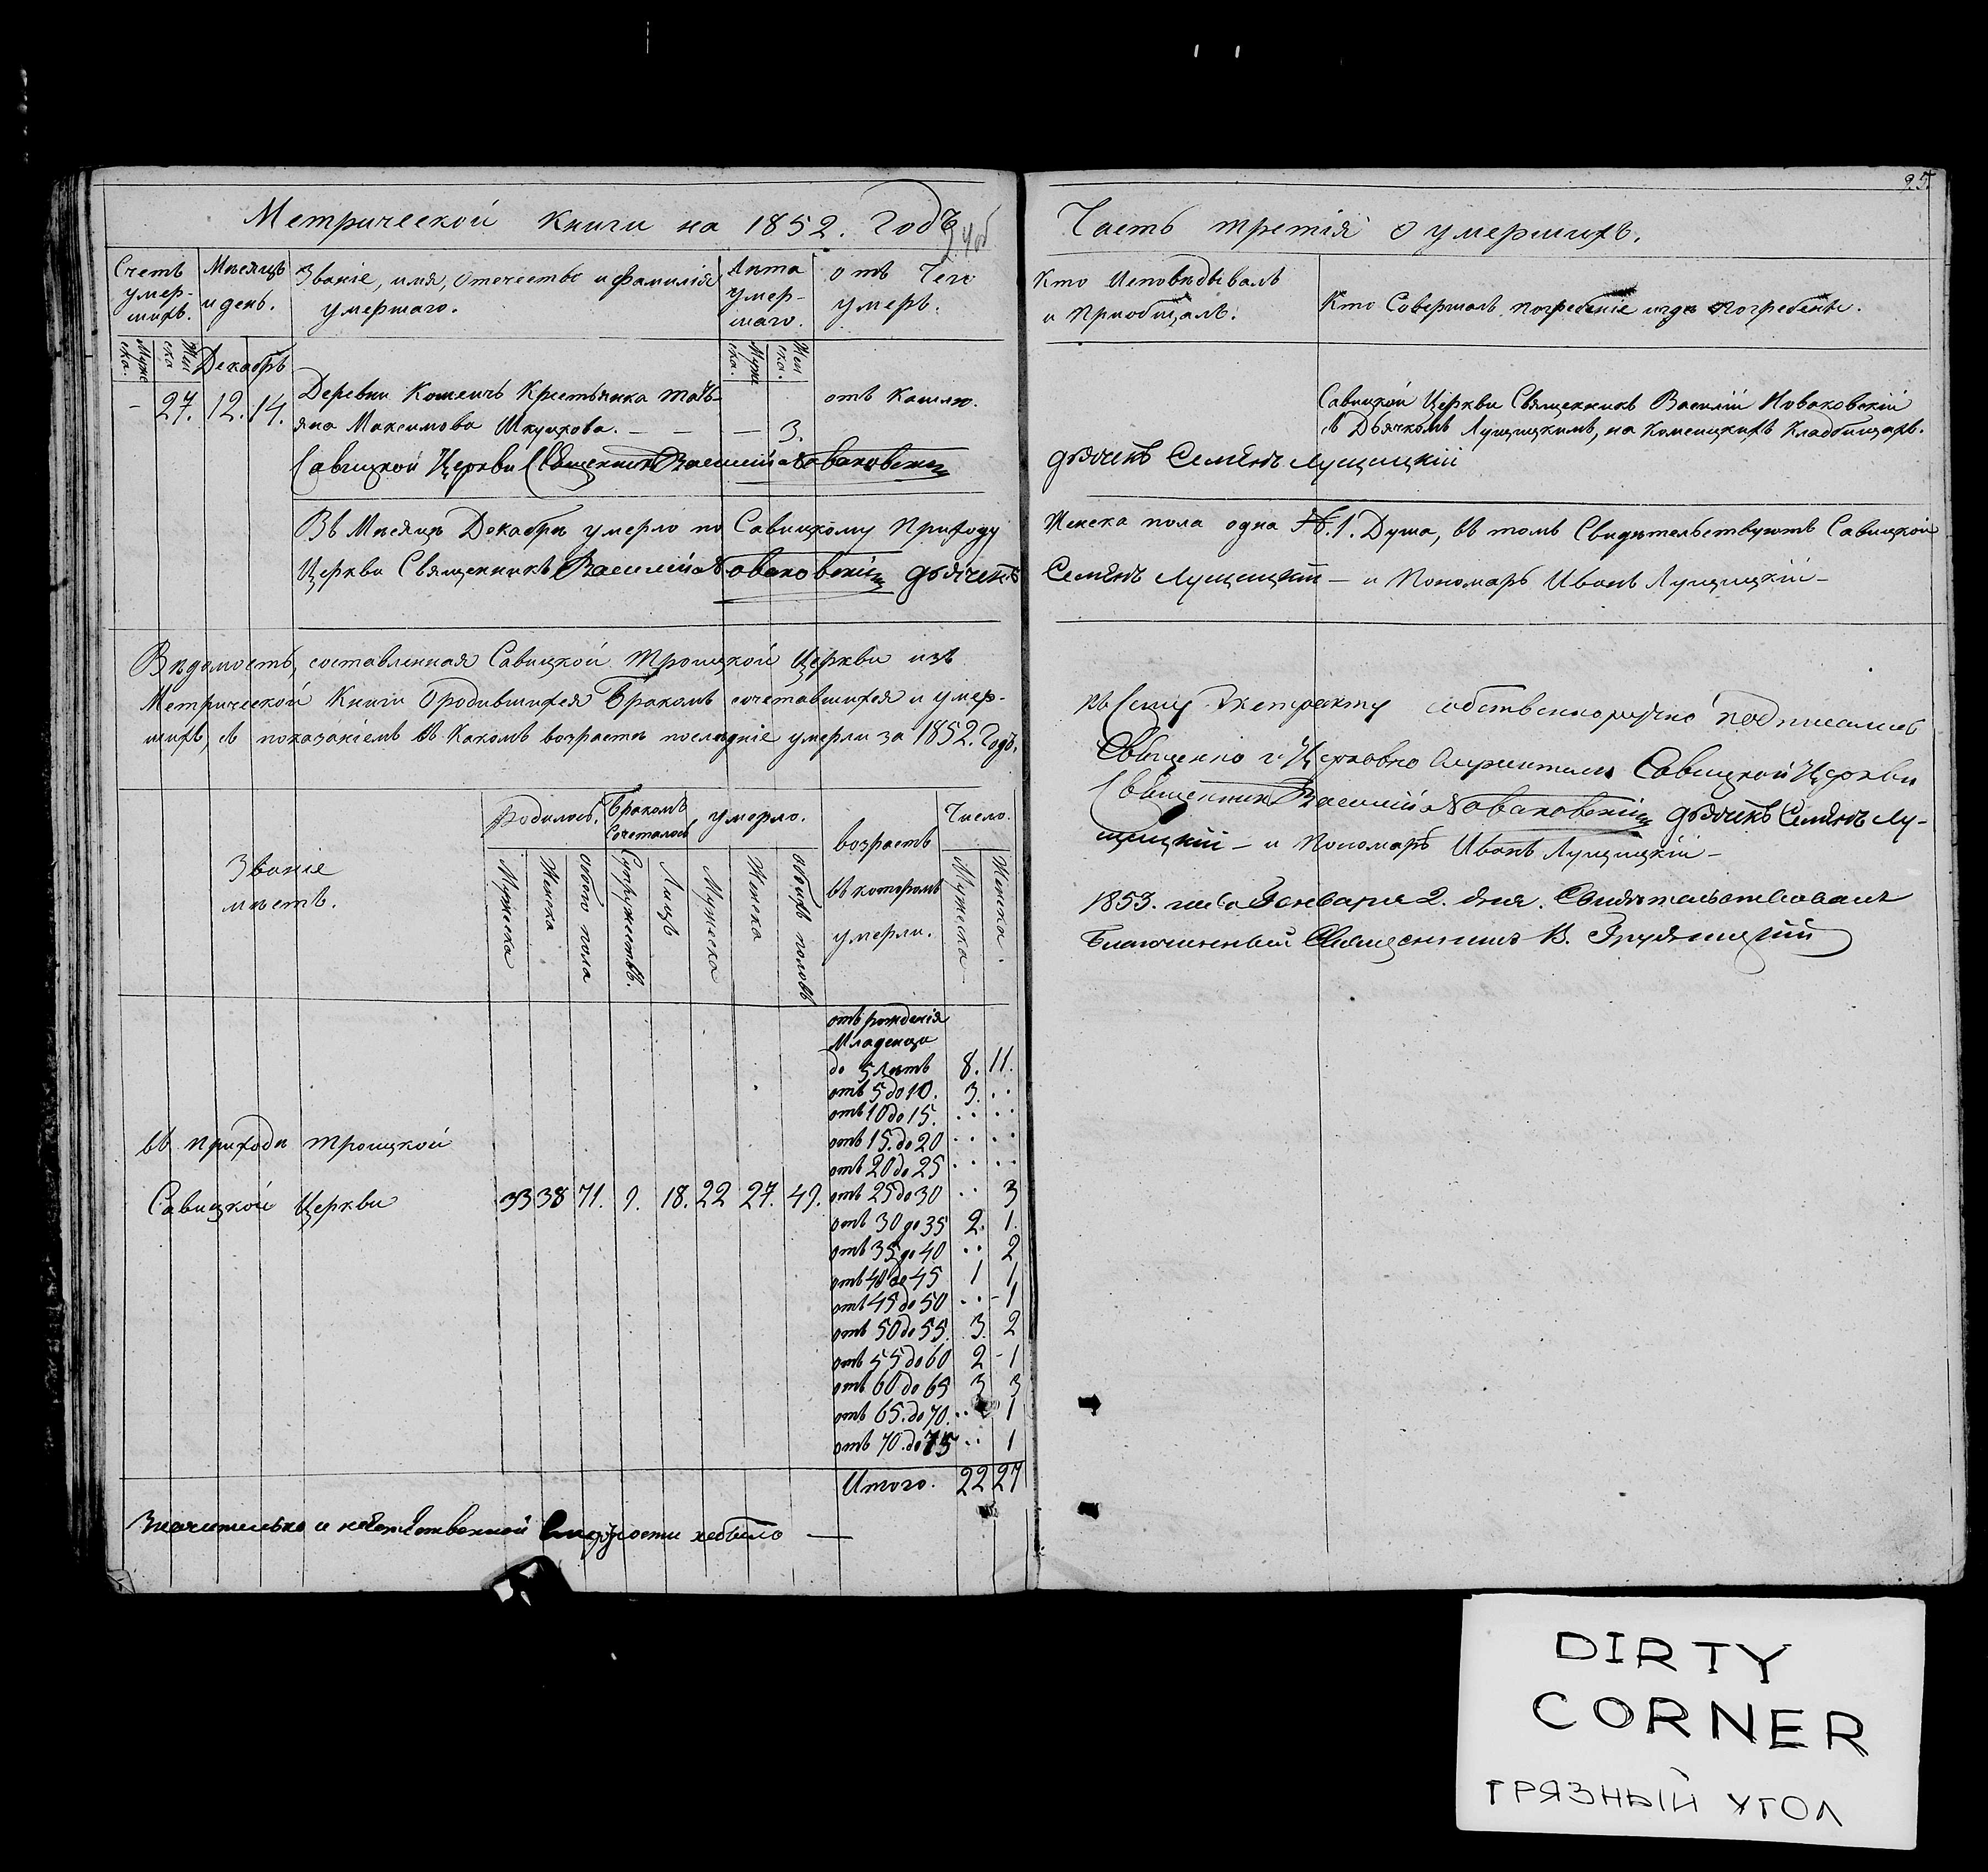 Метрической книги на 1852. Годъ
Счетъ умер- шихъ.
Мѣсяцъ и день.
Званіе, имя, отечество и фамилія умершаго.
Лѣта умер- шаго.
отъ Чего умеръ.
Муже ска.
Жен ска
Декабрь
Муже ска.
Жен ска.
- 27. 12. 14. Деревни Комсичъ Крестьянка Тать-
яна Максимова Шкуцкова. — — — 3. отъ Кашлю.
Савицкой Церкви Священникъ Василій Новаковскій
Въ Мѣсяцѣ Декабрѣ умерло по Савицкому Приходу
Церкви Священникъ Василій Новаковскій дьячекъ
Вѣдомость, составленная Савицкой Троицкой Церкви изъ
Метрической Книги о родившихся Бракомъ сочетавшихся и умер-
шихъ, съ показаніемъ въ Какомъ возрастѣ послѣдніе умерли за 1852. Годъ.
Званіе мѣстъ.
Родилось.
Бракомъ Сочеталось
умерло.
возрастъ въ которомъ умерли.
Число.
Мужеска
Женска
Обоего пола
Супружествъ.
Лицъ
Мужеска
Женска
обоихъ половъ
Мужеска
Женска.
отъ рожденія
Младенца
до 5 Лѣтъ 8. 11.
отъ 5 до 10. 3. ..
отъ 10 до 15. .. ..
отъ 15. до 20 .. ..
отъ 20 до 25 .. ..
въ приходѣ Троицкой
Савицкой Церкви 33 38 71. 9. 18. 22 27. 49. отъ 25 до 30 .. 3
отъ 30 до 35 2. 1.
отъ 35 до 40 .. 2
отъ 40 до 45 1 1
отъ 45 до 50 .. - 1
отъ 50 до 55. 3. 2
отъ 55 до 60 2 - 1
отъ 60 до 65 3 3
отъ 65. до 70. .. 1
отъ 70. до 75 .. 1
Итого. 22 27
Значительно и небыло —
95.
Часть третія о умершихъ.
Кто Исповѣдывалъ и Пріобщалъ.
Кто Совершалъ погребеніе и гдѣ погребены.
Савицкой Церкви Священникъ Василій Новаковскій
съ Дьячкомъ Лущицкимъ, на Комсицкихъ Кладбищахъ.
дьячекъ Семенъ Лущицкій
Женска пола одна №. 1. Душа, въ томъ Свидѣтельствуютъ Савицкой
Семенъ Лущицкій — и Пономарь Иванъ Лущицкій —
Къ Сему Экстракту собственноручно подписались
Священно и Церковно Служители Савицкой Церкви
Священникъ Василій Новаковскій дьячекъ Семенъ Лу-
щицкій — и Пономарь Иванъ Лущицкій —
1853. года Января 2. дня. Свидѣтельствовалъ
Благочинный Священникъ В.
DIRTY
CORNER
ГРЯЗНЫЙ УГОЛ